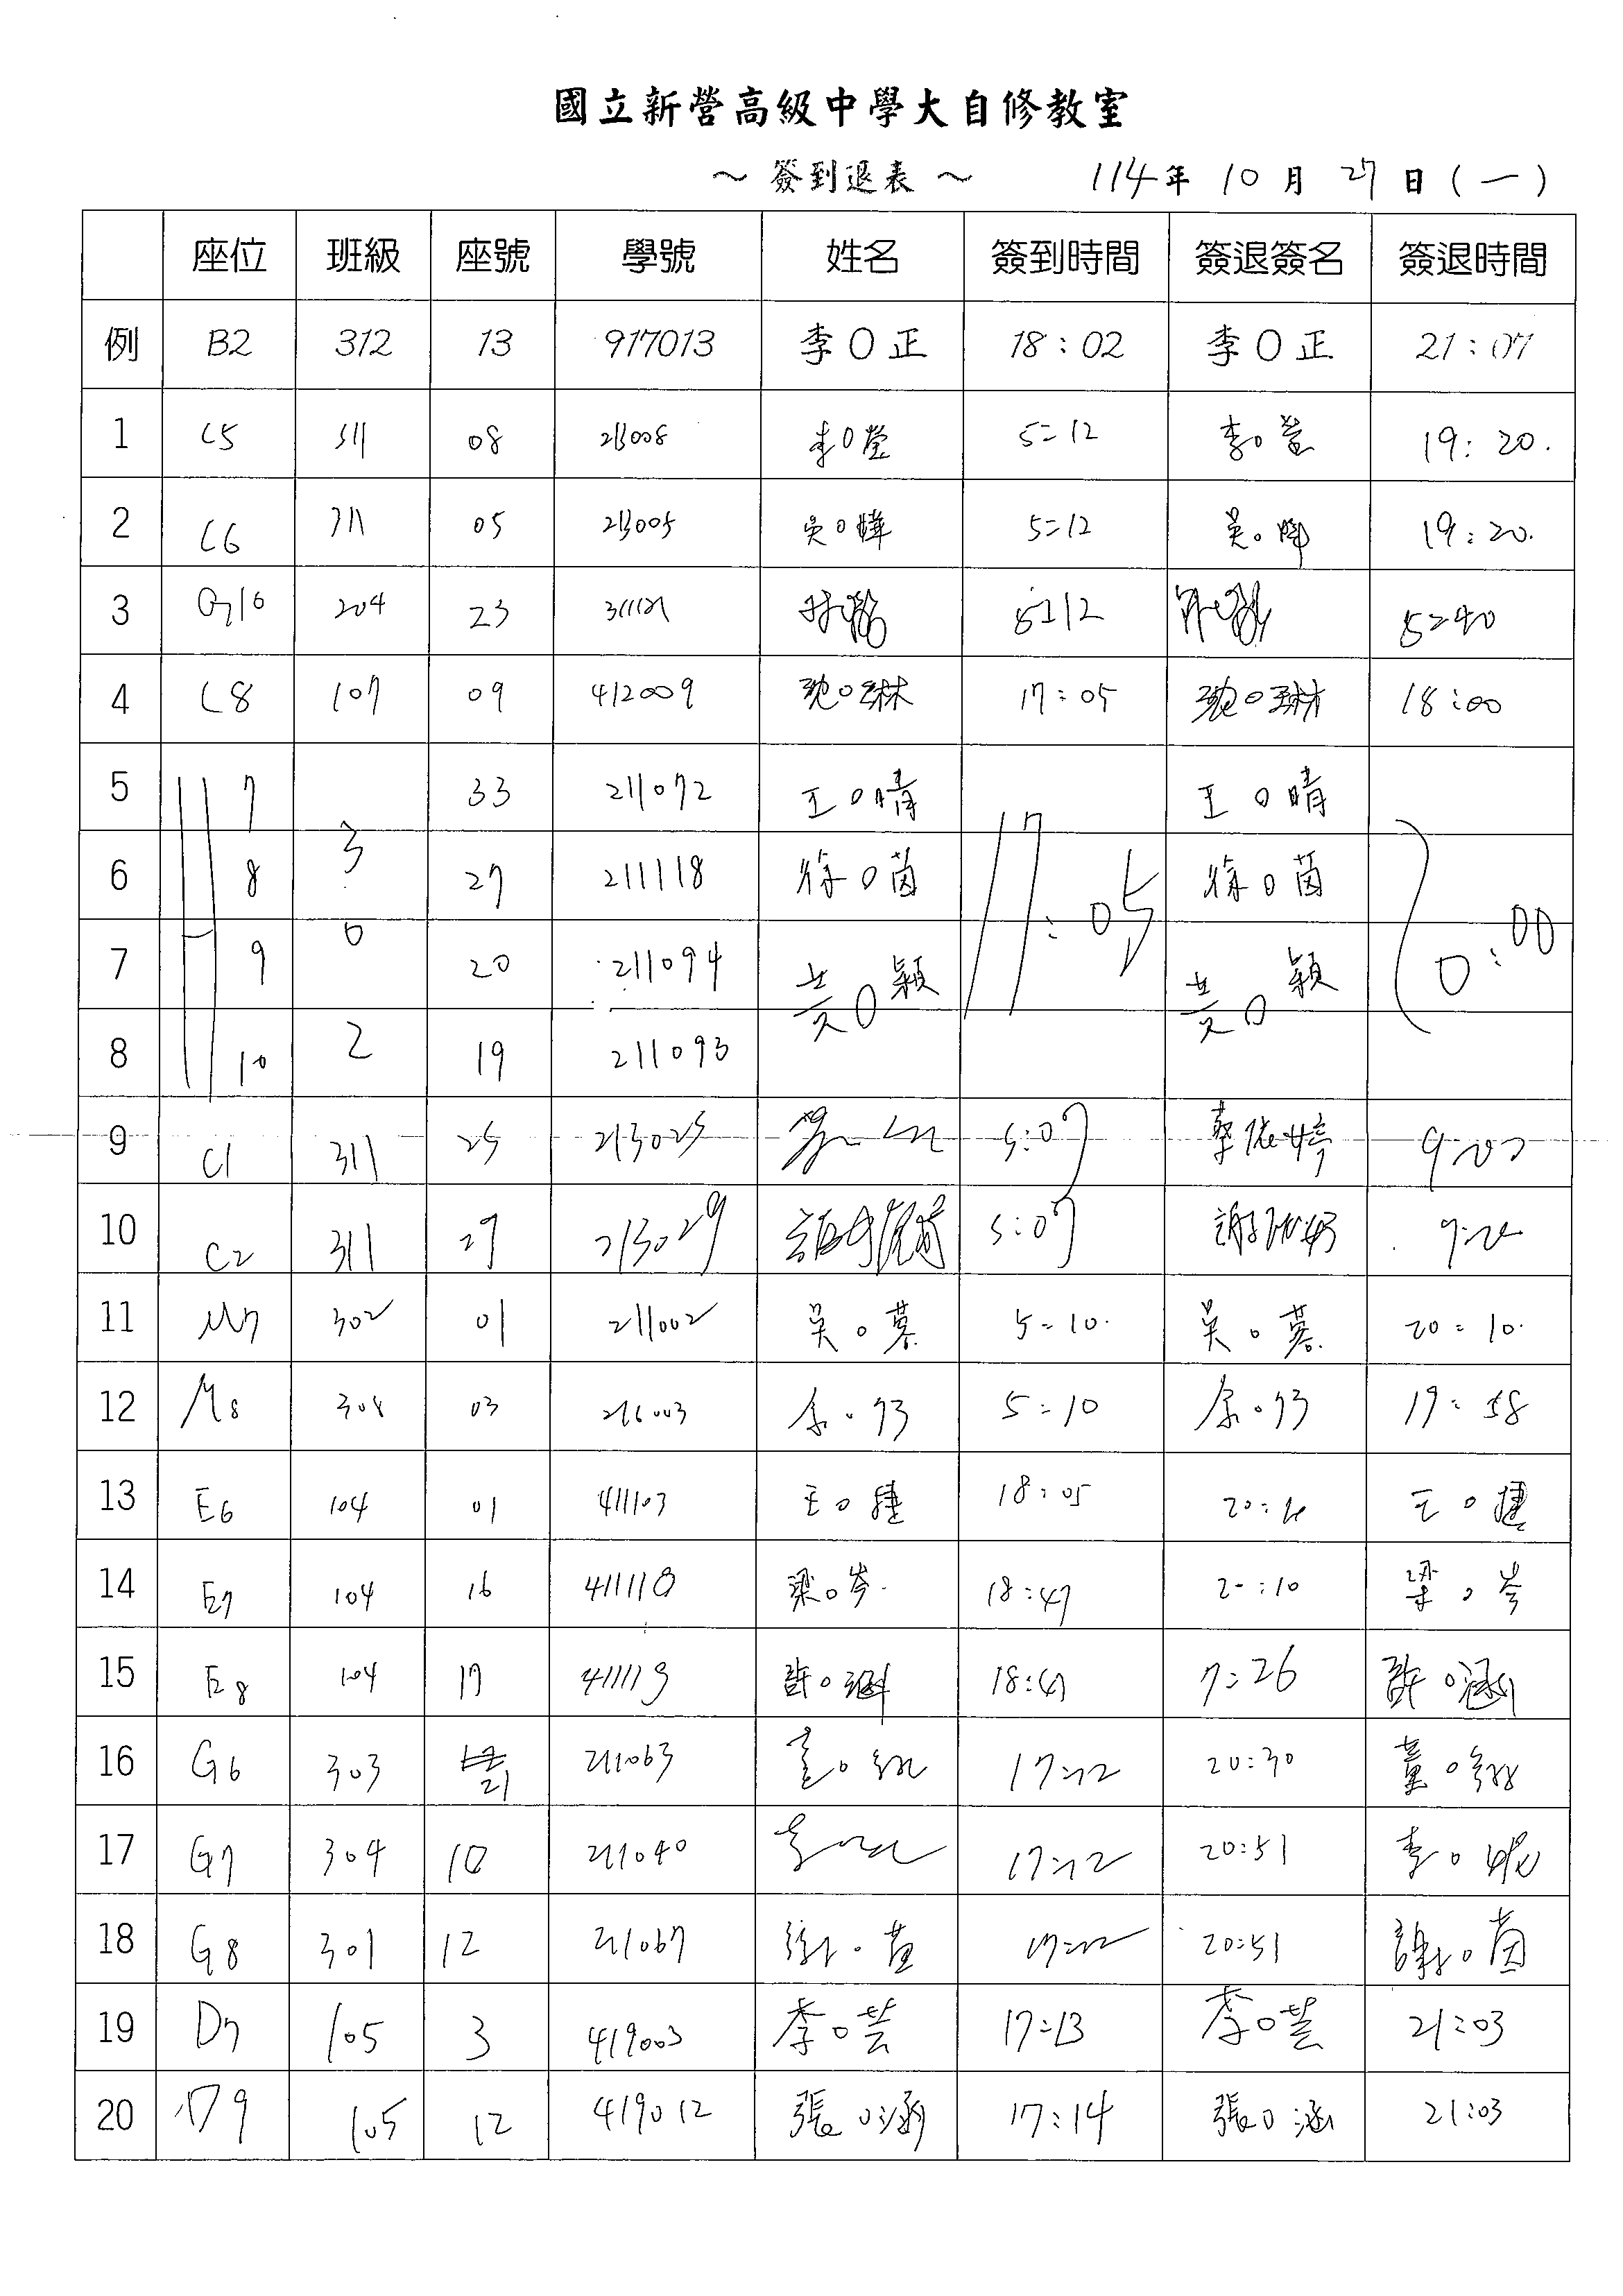 國立新營高級中學大自修教室
～ 簽到退表 ～ 114年 10 月 27 日 ( 一 )
座位 班級 座號 學號 姓名 簽到時間 簽退簽名 簽退時間
例 B2 312 13 917013 李O正 18:02 李O正 21:07
1 C5 311 08 213008 李O瑩 5:12 李O瑩 19:20.
2 C6 311 05 213005 吳O 5:12 吳O 19:20.
3 204 23 5:12 5:40
4 C8 107 09 412009 沈O琳 17:05 沈O琳 18:00
5 7 33 211072 王O晴 王O晴
6 H 8 3 27 211118 徐O茵 17:05 徐O茵
7 9 0 20 211094 黃O穎 黃O穎 0:00
8 10 2 19 211093
9 C1 311 25 213025 5:07 蔡依婷 9:00
10 C2 311 29 213029 5:07 謝
11 M7 302 01 211002 吳O慕 5:10. 吳O慕 20:10.
12 M8 308 03 216003 5:10 19:58
13 E6 104 01 411103 王O捷 18:05 王O捷
14 E7 104 16 411118 梁O岑 18:47 20:10 梁O岑
15 E8 104 17 411119 許O涵 18:47 7:26 許O涵
16 G6 303 21 211063 17:12 20:30 董O
17 G7 304 10 211040 17:12 20:51 李O
18 G8 301 12 211067 謝O茵 17:12 20:51 謝O茵
19 D7 105 3 419003 李O芸 17:13 李O芸 21:03
20 D9 105 12 419012 張O涵 17:14 張O涵 21:03